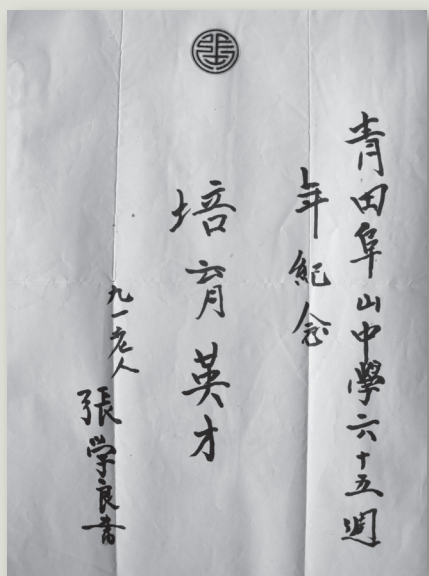 青田阜山中學六十五週
年紀念
培育英才
九一老人
張学良書